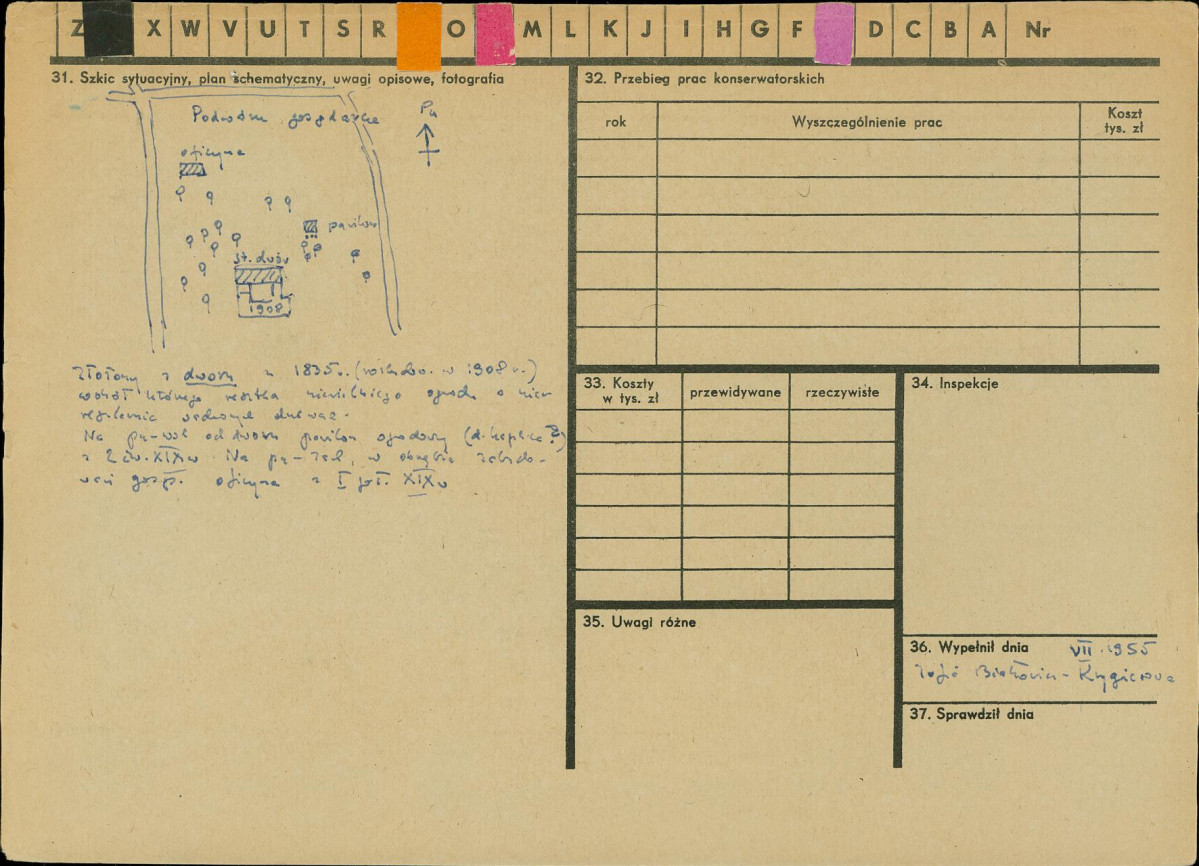 Z X W V U T S R O M L K J I H G F D C B A Nr
31. Szkic sytuacyjny, plan schematyczny, uwagi opisowe, fotografia
Podwórze gospodarcze
Pn
oficyna
pawilon
st. dwór
1908
Złożony z dworu z 1835 r. (rozbudow. w 1908 r.)
wokół którego resztka niewielkiego ogrodu o nie
regularnie sadzonych drzewach.
Na pn-wsch od dworu pawilon ogrodowy (d. kaplica?)
z 2 ćw. XIX w. Na pn-zach, w obrębie zabudo-
wań gosp. oficyna z I poł. XIX w
32. Przebieg prac konserwatorskich
rok
Wyszczególnienie prac
Koszt
tys. zł
33. Koszty
w tys. zł
przewidywane
rzeczywiste
34. Inspekcje
35. Uwagi różne
36. Wypełnił dnia VII.1955
Zofia
37. Sprawdził dnia